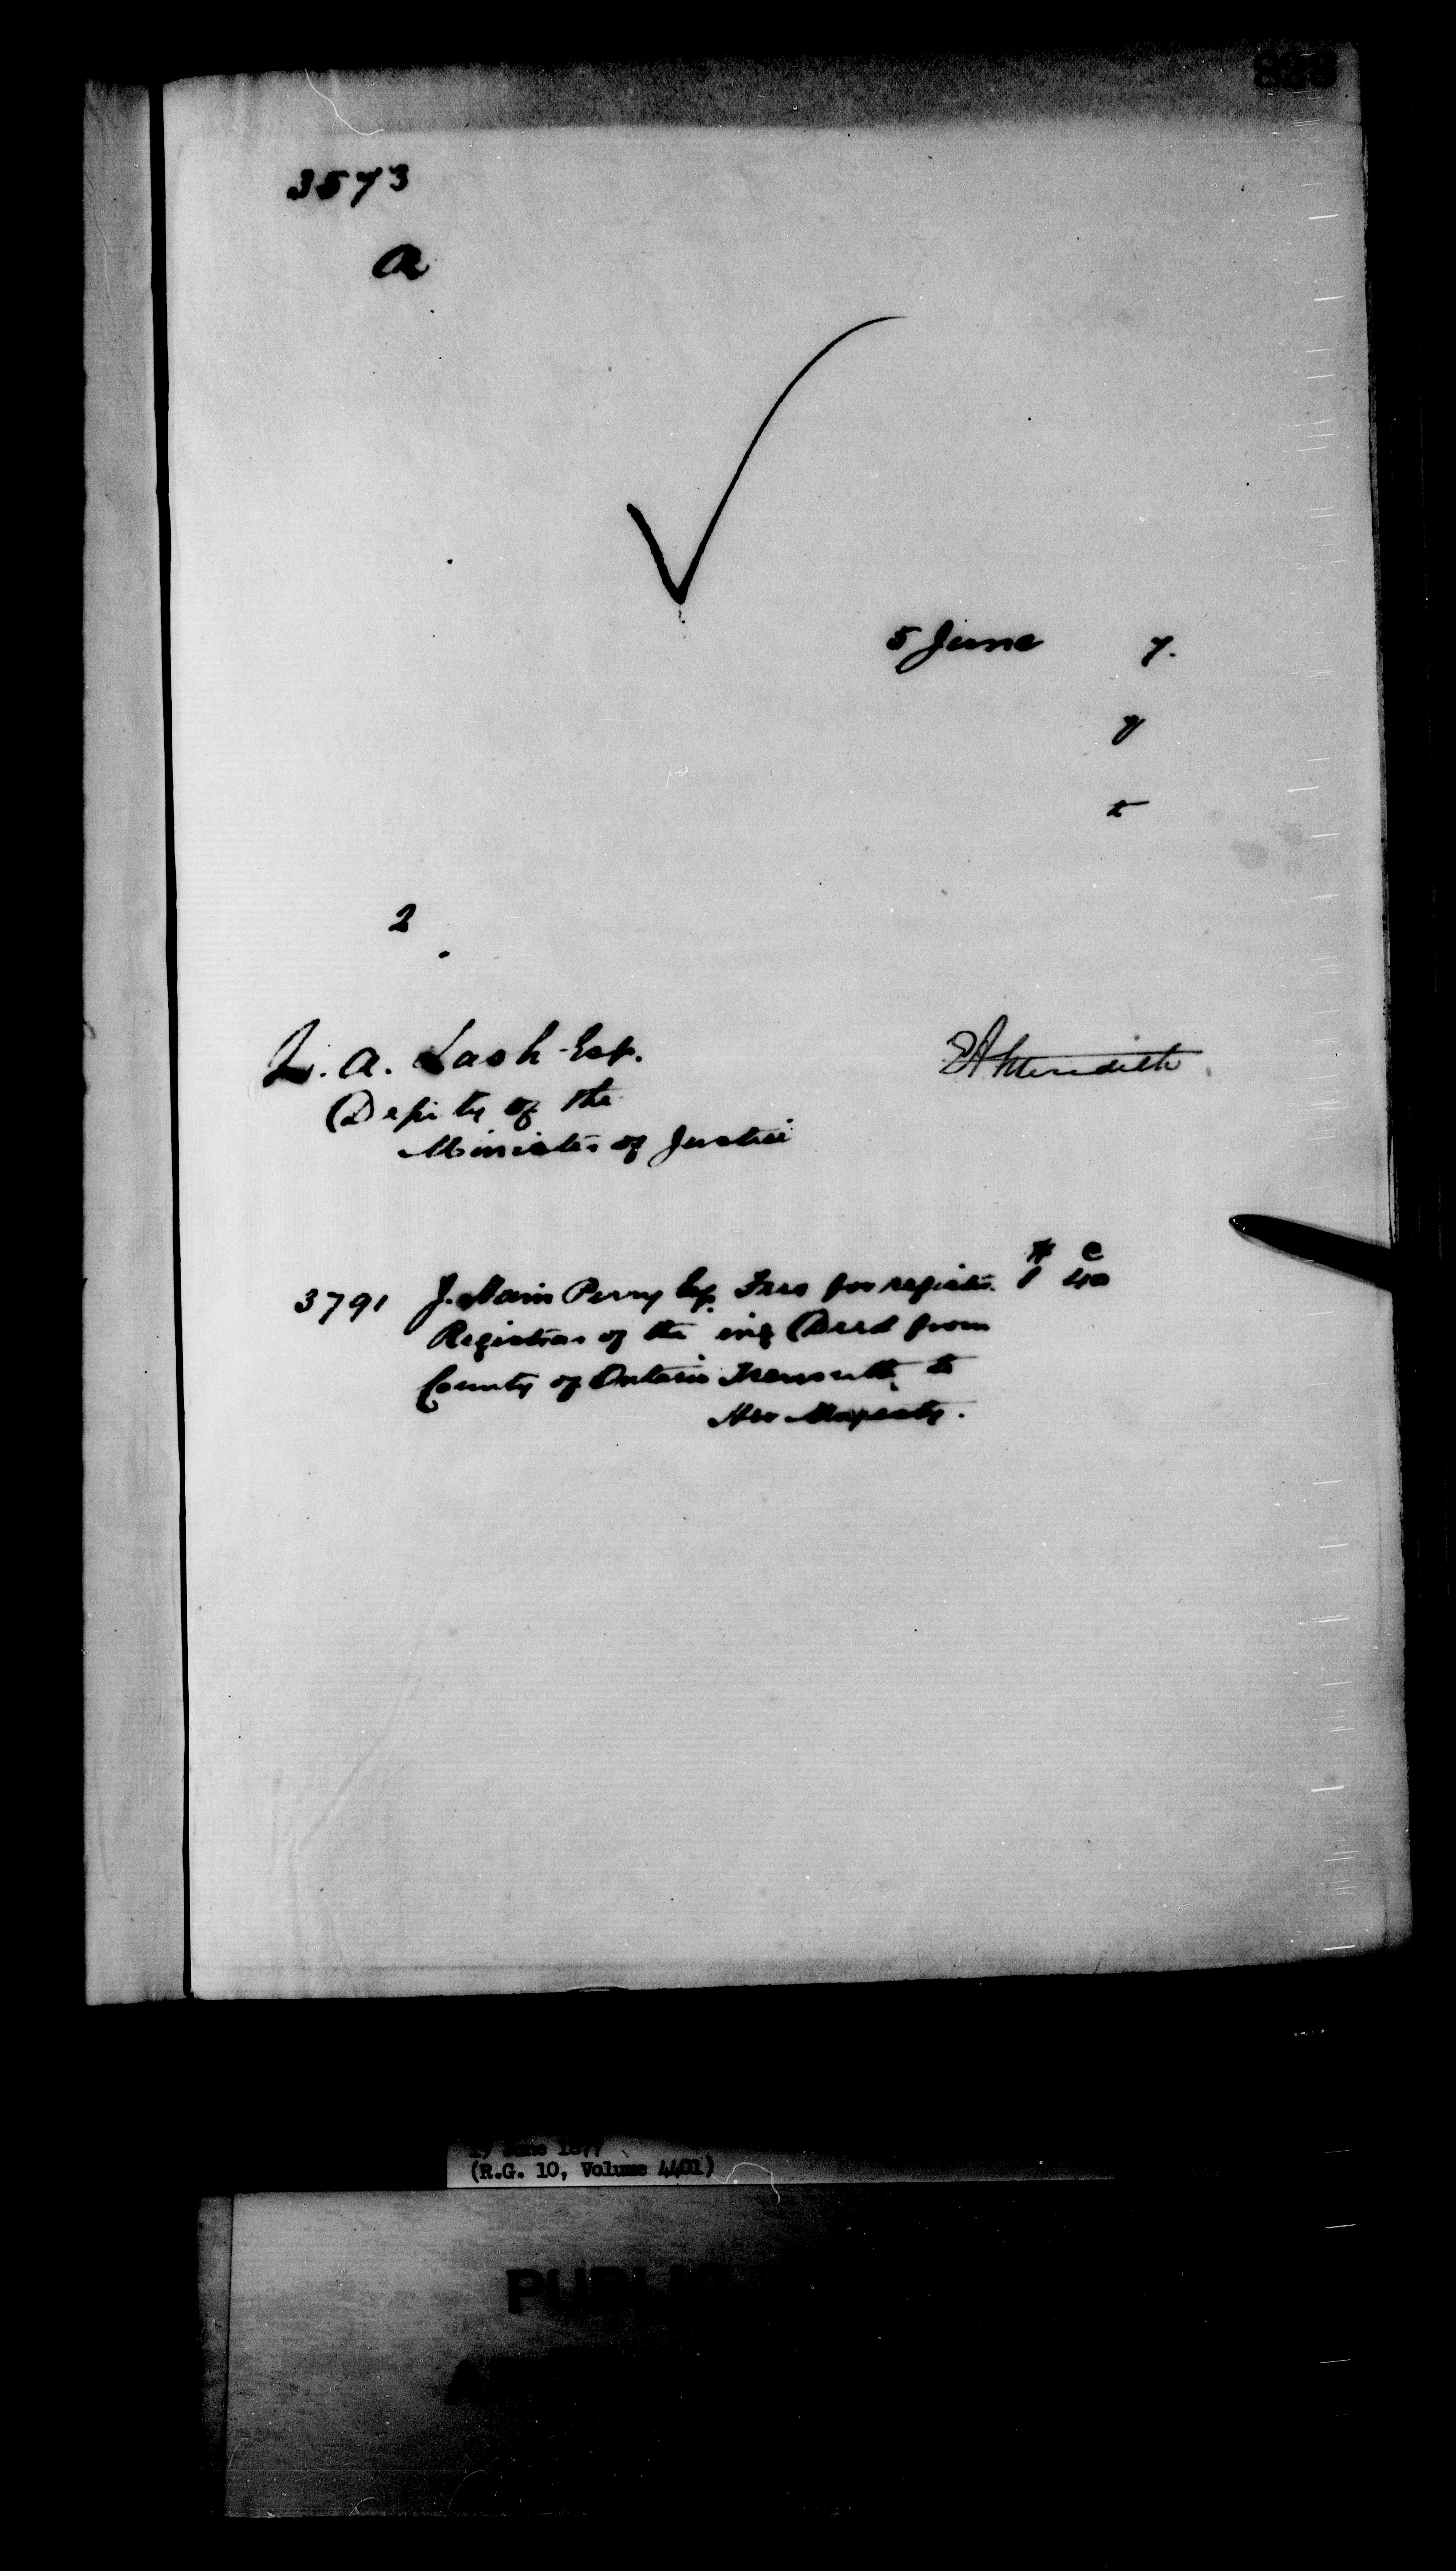 3573
a
5 June 7.
y
t
2
Z. A. Lash Esq.
Deputy of the
Minister of Justice
EA Meredith
$ c
3791 J. Ham Perry Esq. Fees for register 1 40
Registrar of the ing Deed from
County of Ontario to
Her Majesty.
19 June 1877
(R.G. 10, Volume 4401)
PUBLIC